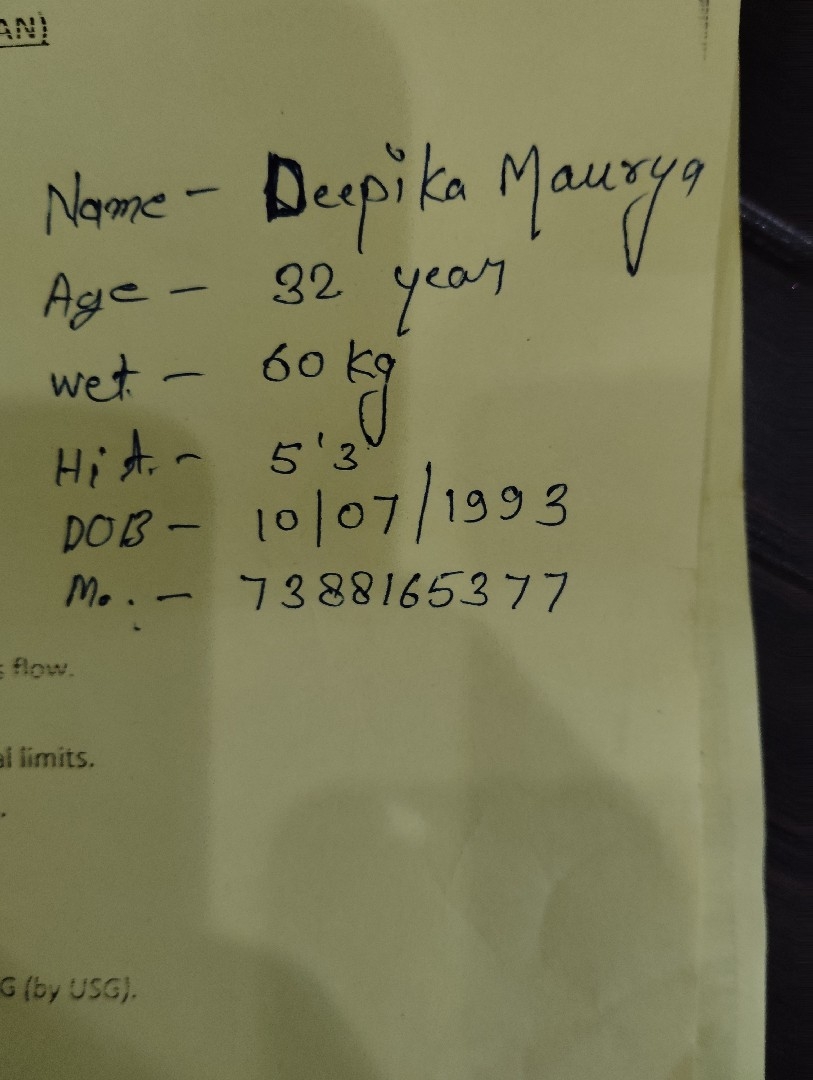 AN)
Name - Deepika Maurya
Age - 32 year
wet. - 60 kg
Hit. - 5'3
DOB - 10/07/1993
Mo. - 7388165377
flow.
limits.
G (by USG).